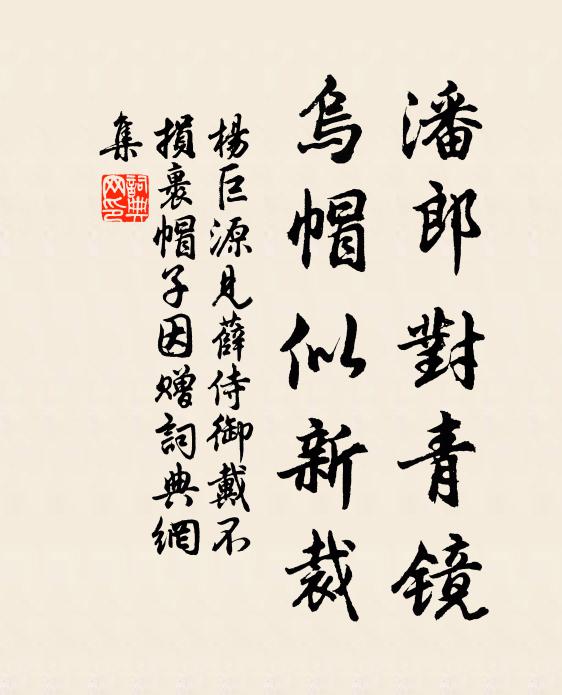 潘郎對青镜
烏帽似新裁
楊巨源見薛侍御戴不
損裹帽子因贈詞典網
集
詞典
网印